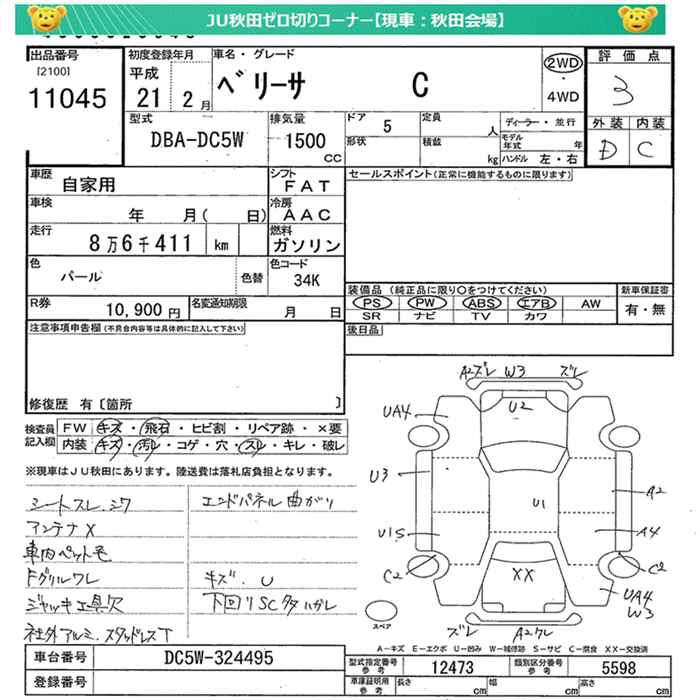 JU秋田ゼロ切りコーナー【現車：秋田会場】
出品番号 初度登録年月 車名・グレード 2WD 評価点
[2100] 平成
11045 21 2月 ベリーサ C 4WD 3
型式 排気量 ドア 5 定員 人 ディーラー・並行 外装 内装
DBA-DC5W 1500 CC 形状 積載 kg モデル年式 年 D C
ハンドル 左・右
車歴 自家用 シフト FAT セールスポイント(正常に機能するものに限ります)
車検 年 月( 日) 冷房 AAC
走行 8万6千411 km 燃料 ガソリン
色 パール 色替 色コード 34K
装備品 (純正品に限り○をつけてください) 新車保証書
R券 10,900円 名変通知期限 月 日 PS PW ABS エアB AW 有・無
SR ナビ TV カワ
注意事項申告欄(不具合内容等は具体的に記入して下さい) 後日品
修復歴 有〔箇所 〕
検査員記入欄 FW キズ・飛石・ヒビ割・リペア跡・×要
内装 キズ・汚れ・コゲ・穴・スレ・キレ・破レ
※現車はJU秋田にあります。陸送費は落札店負担となります。
シートスレ.シワ エンドパネル曲がり
アンテナX
車内ペット毛
Fグリルワレ キズ.U
ジャッキ工具欠 下回りSC多ハガレ
社外アルミ.スタッドレスT
A2ズレ W3 ズレ
U2
UA4
U3
U1
A2
U1S
A4
C2
XX
C2
UA4
W3
スペア
ズレ A2ワレ
A−キズ E−エクボ U−凹み W−補修跡 S−サビ C−腐食 XX−交換済
車台番号 DC5W-324495 型式指定番号 参考 12473 類別区分番号 参考 5598
登録番号 車庫証明用 参考 長さ cm 幅 cm 高さ cm